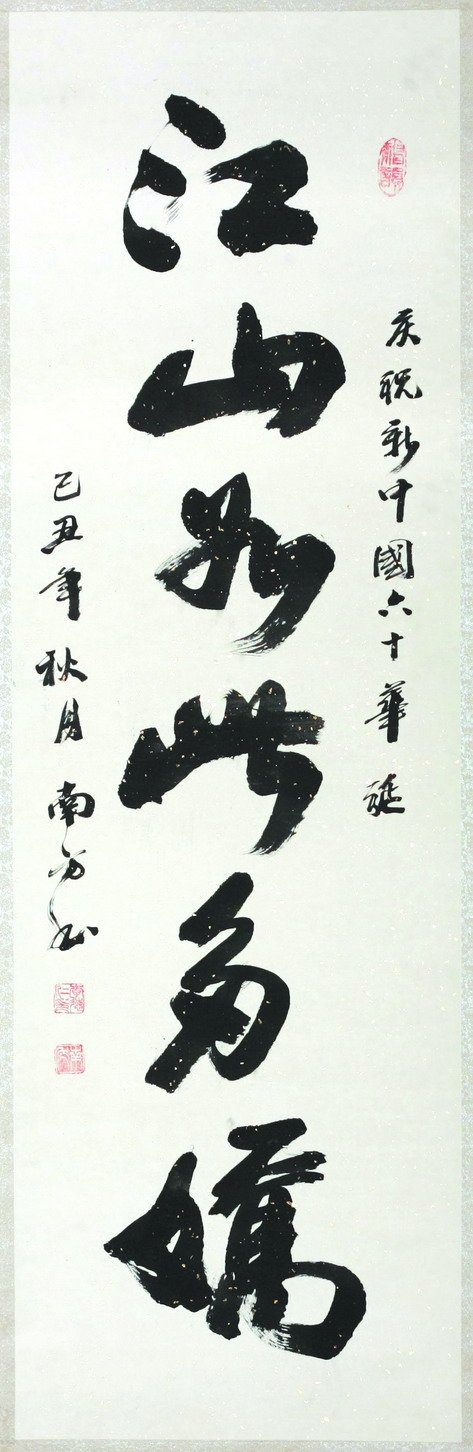 庆祝新中國六十華誕
江山如此多嬌
己丑年秋月南方书